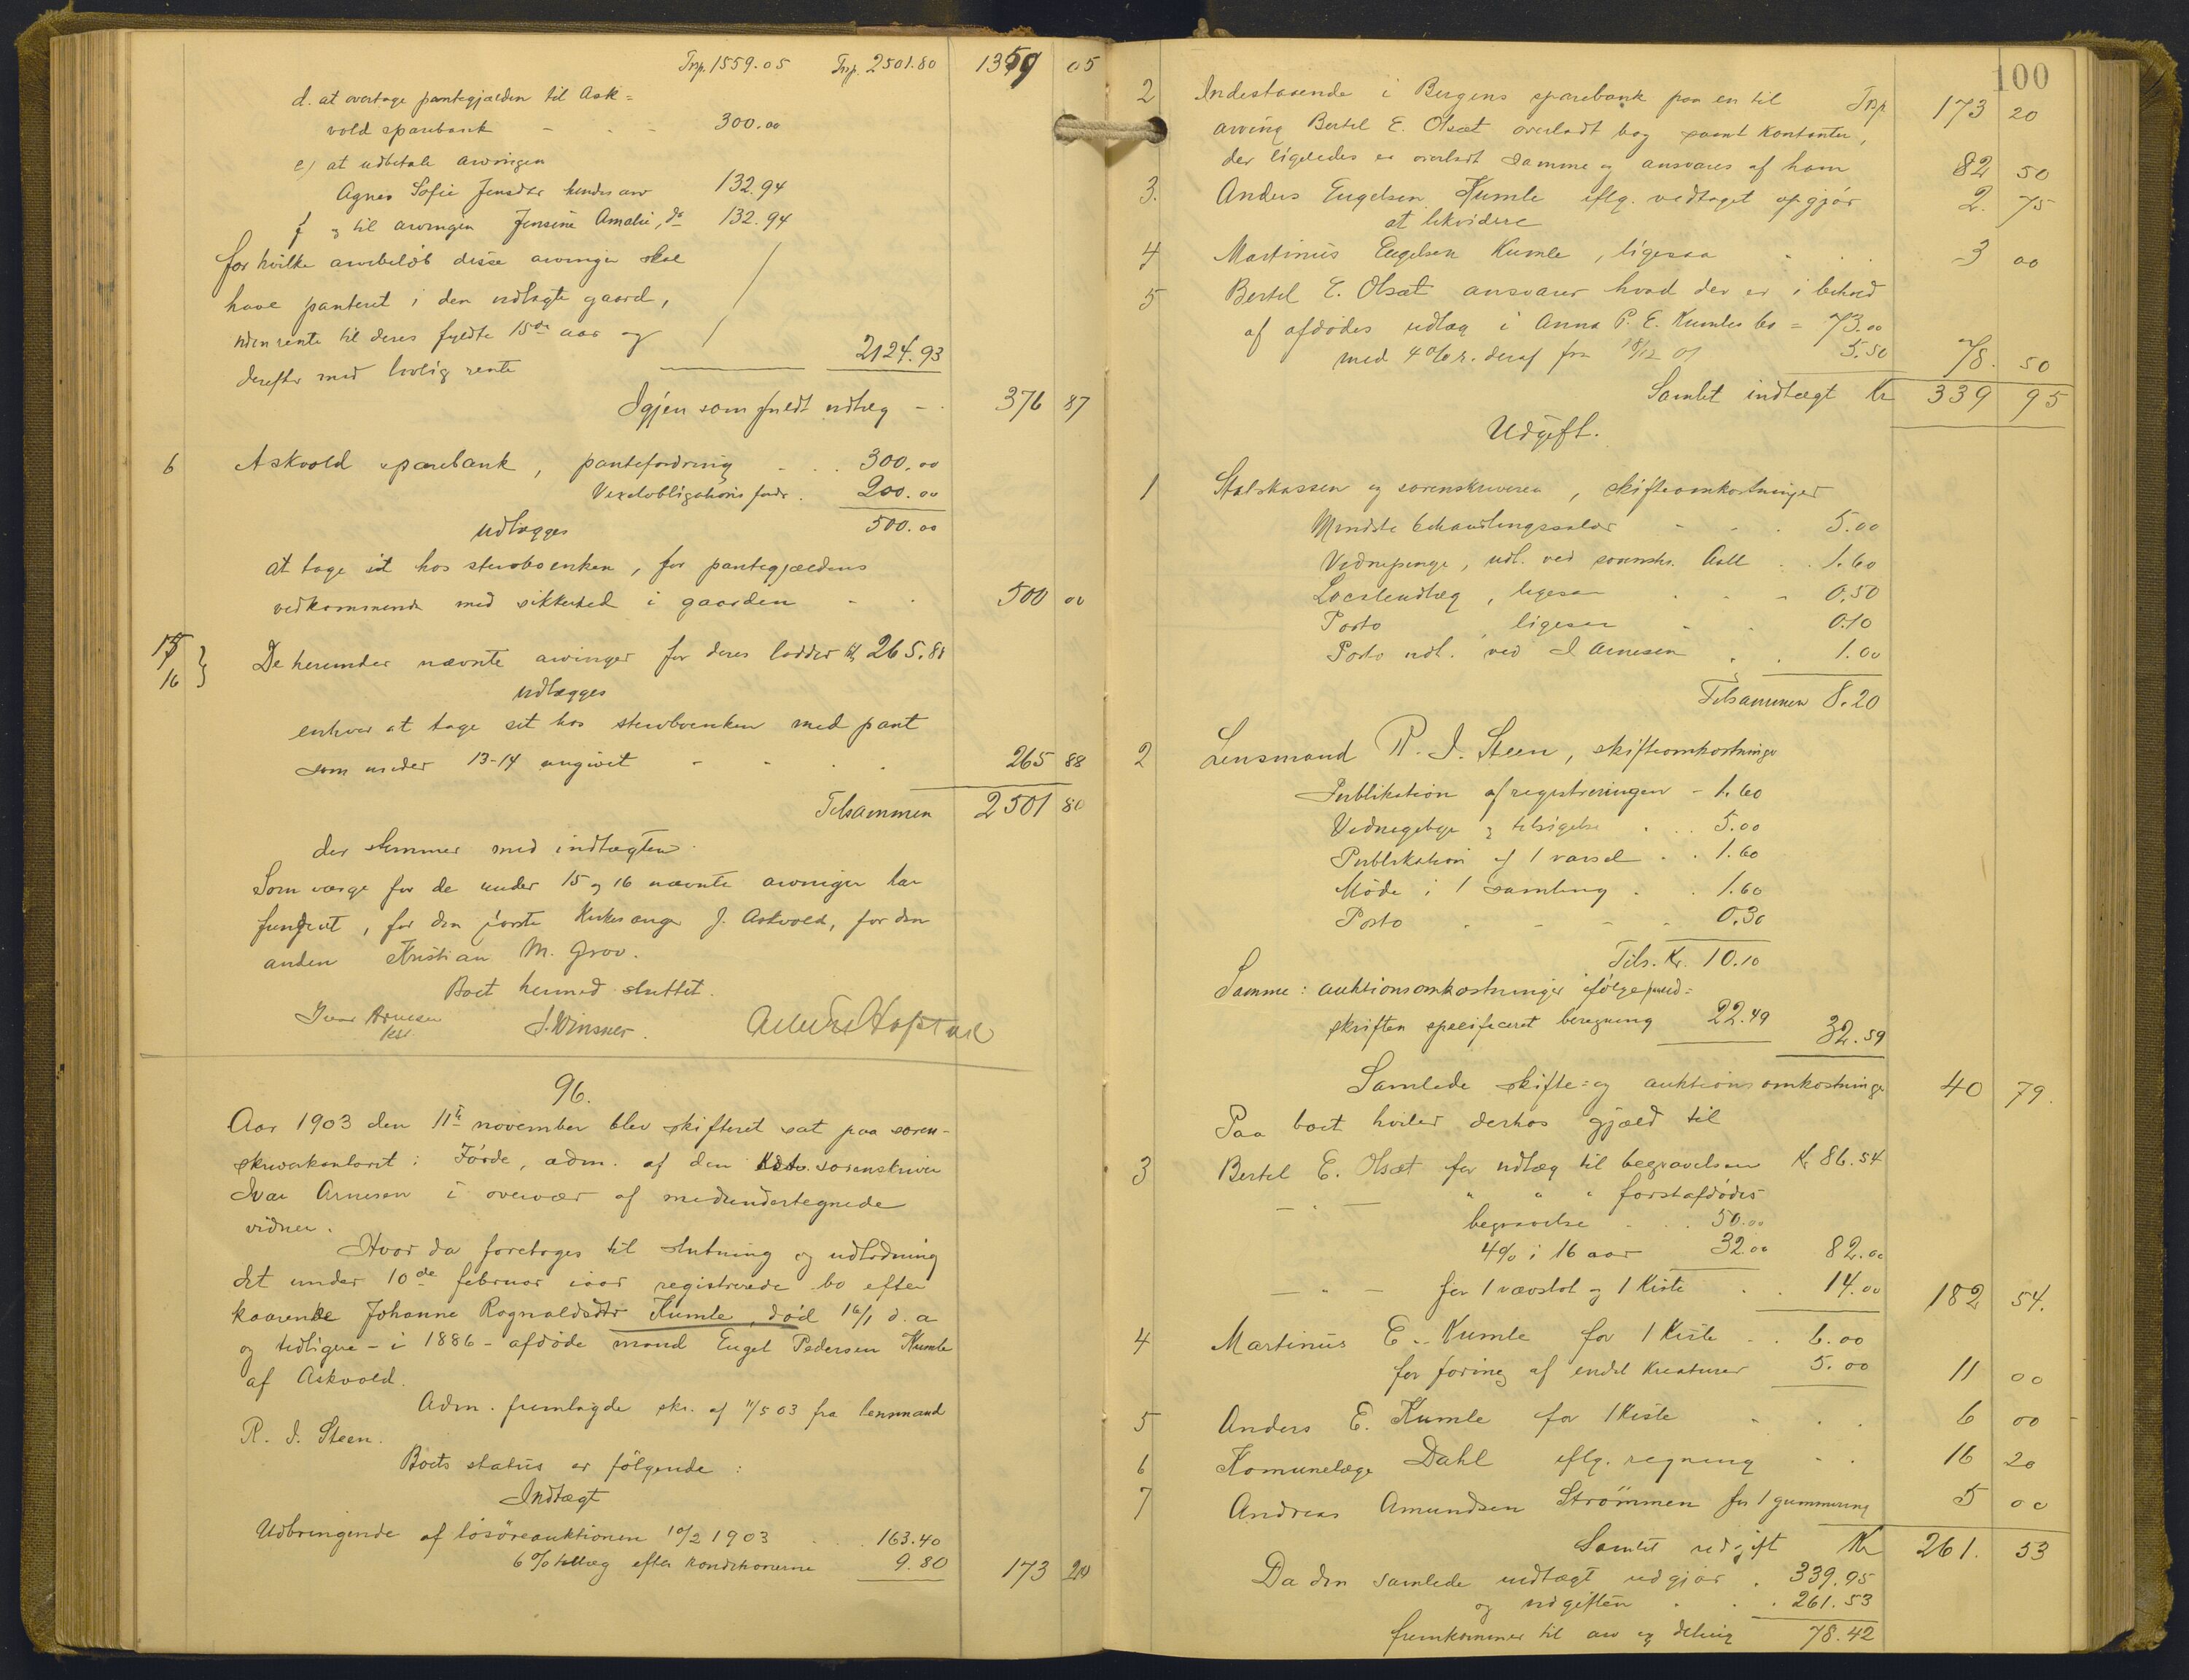 Trp. 1559.05 Trp. 2501.80 1359 05
d. at overtage pantegjælden til Ask=
vold sparebank - - - 300.00
e) at udbetale arvingen
Agnes Sofie Jensdtr hendes arv 132.94
f og til arvingen Jensine Amalie, do 132.94
for hvilke arvebeløb disse arvinger skal
have panteret i den udlagte gaard,
uden rente til deres fyldte 15de aar og
derefter med lovlig rente 2124.93
Igjen som fuldt udlæg - - 376 87
6 Askvold sparebank, pantefordring - . . 300.00
Vexelobligations fordr. 200.00
udlægges 500.00
at tage sit hos sterboenken, for pantegjældens
vedkommende med sikkerhed i gaarden - - 500 00
15
16 } De herunder nævnte arvinger for deres lodder 265.88
udlægges
enhver at tage sit hos sterboenken med pant
som under 13-14 angivet - - - - 265 88
Tilsammen 2501 80
der stemmer med indtægten.
Som værge for de under 15 og 16 nævnte arvinger har
fungeret, for den første Kirkesanger J. Askvold, for den
anden Kristian M. Grov.
Boet hermed sluttet.
Ivar Arnesen J. Winsner.
kst.
96.
Aar 1903 den 11te november blev skifteret sat paa soren-
skriverkontoret i Førde, adm. af den Kst. sorenskriver
Ivar Arnesen i overvær af medundertegnede
vidner.
Hvor da foretoges til slutning og udlodning
det under 10de februar iaar registrerede bo efter
kaarenke Johanne Ragnaldsdtr Kumle, død 16/1 d. a
og tidligere - i 1886 - afdøde mand Engel Pedersen Kumle
af Askvold.
Adm. fremlagde skr. af 11/5 03 fra lensmand
R. J. Steen.
Boets status er følgende:
Indtægt
Udbringende af løsøreauktionen 10/2 1903 . . 163.40
6 % tillæg efter konditionerne 9.80 173 20
100
2 Indestaaende i Bergens sparebank paa en til Trp 173 20
arving Bertel E. Olsæt overladt bog samt kontanter,
der ligeledes er overladt samme og ansvares af ham 82 50
3. Anders Engelsen Kumle eflg. vedtaget opgjør 2. 75
at likvidere
4 Martinus Engelsen Kumle, ligesaa - . . 3 00
5 Bertel E. Olsæt ansvarer hvad der er i behold
af afdødes udlæg i Anna P. E. Kumles bo = 73.00
med 4 % r. deraf fra 18/12 01 5.50 78. 50
Samlet indtægt Kr 339 95
Udgift.
1 Statskassen og sorenskriveren, skifteomkostninger
Mindste behandlingssalær - - . 5.00
Vidnepenge, udl. ved sorenskr. Aall . . 1.60
Localeudlæg, ligesaa . . - 0.50
Porto, ligesaa - . 0.10
Porto udl. ved I Arnesen . . 1.00
Tilsammen 8.20
2 Lensmand R. J. Steen, skifteomkostninger
Publikation af registreringen - 1.60
Vidnegebyr og tilsigelse . . . 5.00
Publikation af 1 varsel . . 1.60
Møde i 1 samling . . 1.60
Porto . - - . 0.30
Tils. Kr. 10.10
Samme: auktionsomkostninger ifølge paaud=
skriften specificeret beregning 22.49 32.59
Samlede skifte= og auktionsomkostninger 40 79.
Paa boet hviler derhos gjæld til
3 Bertel E. Olsæt for udlæg til begravelsen Kr 86.54
- " - " " " førstafdødes
begravelse . . . 50.00
4 % i 16 aar 32.00 82.00
- " - for 1 vævstol og 1 kiste . . 14.00 182 54.
4 Martinus E. Kumle for 1 kiste - . 6.00
for foring af endel kreaturer 5.00 11 00
5 Anders E. Kumle for 1 kiste - . . 6 00
6 Komunelæge Dahl eflg. regning - . 16 20
7 Andreas Amundsen Strømmen for 1 gummering 5 00
Samlet udgift Kr 261. 53
Da den samlede indtægt udgjør . 339.95
og udgiften . . . 261.53
fremkommer til arv og deling 78.42